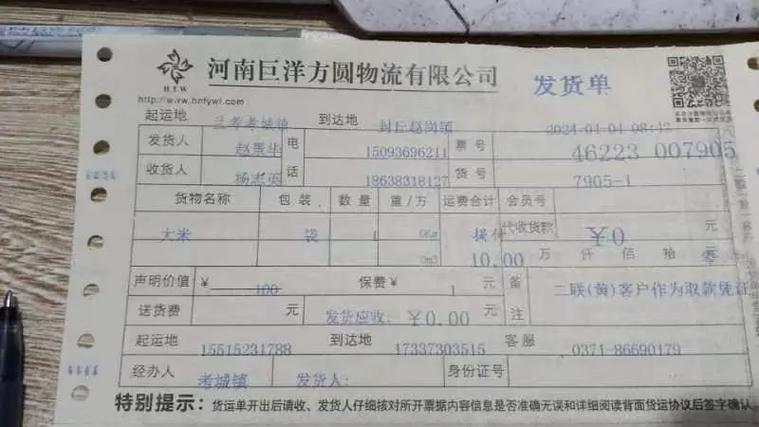 河南巨洋方圆物流有限公司 发货单
H.Y.W
http://w.rw.hnfywl.com
起运地 兰考考城镇 到达地 封丘赵岗镇 2024-04-04 08:42
发货人 赵景华 电话 15093696211 票号 46223 007905
收货人 杨志英 18638318127 货号 7905-1
货物名称 包装 数量 重/方 运费合计 会员号
大米 袋 1 0Kg 提付 代收货款 ¥0 元
0m3 10.00 万 仟 佰 拾 零
声明价值 ¥ 100 保费¥ 1 元 备注 二联(黄)客户作为取款凭证
送货费 元 发货应收: ¥0.00
起运地 15515231788 到达地 17337303515 客服 0371-86690179
经办人 考城镇 发货人: 身份证号
特别提示: 货运单开出后请收、发货人仔细核对所开票据内容信息是否准确无误和详细阅读背面货运协议后签字确认